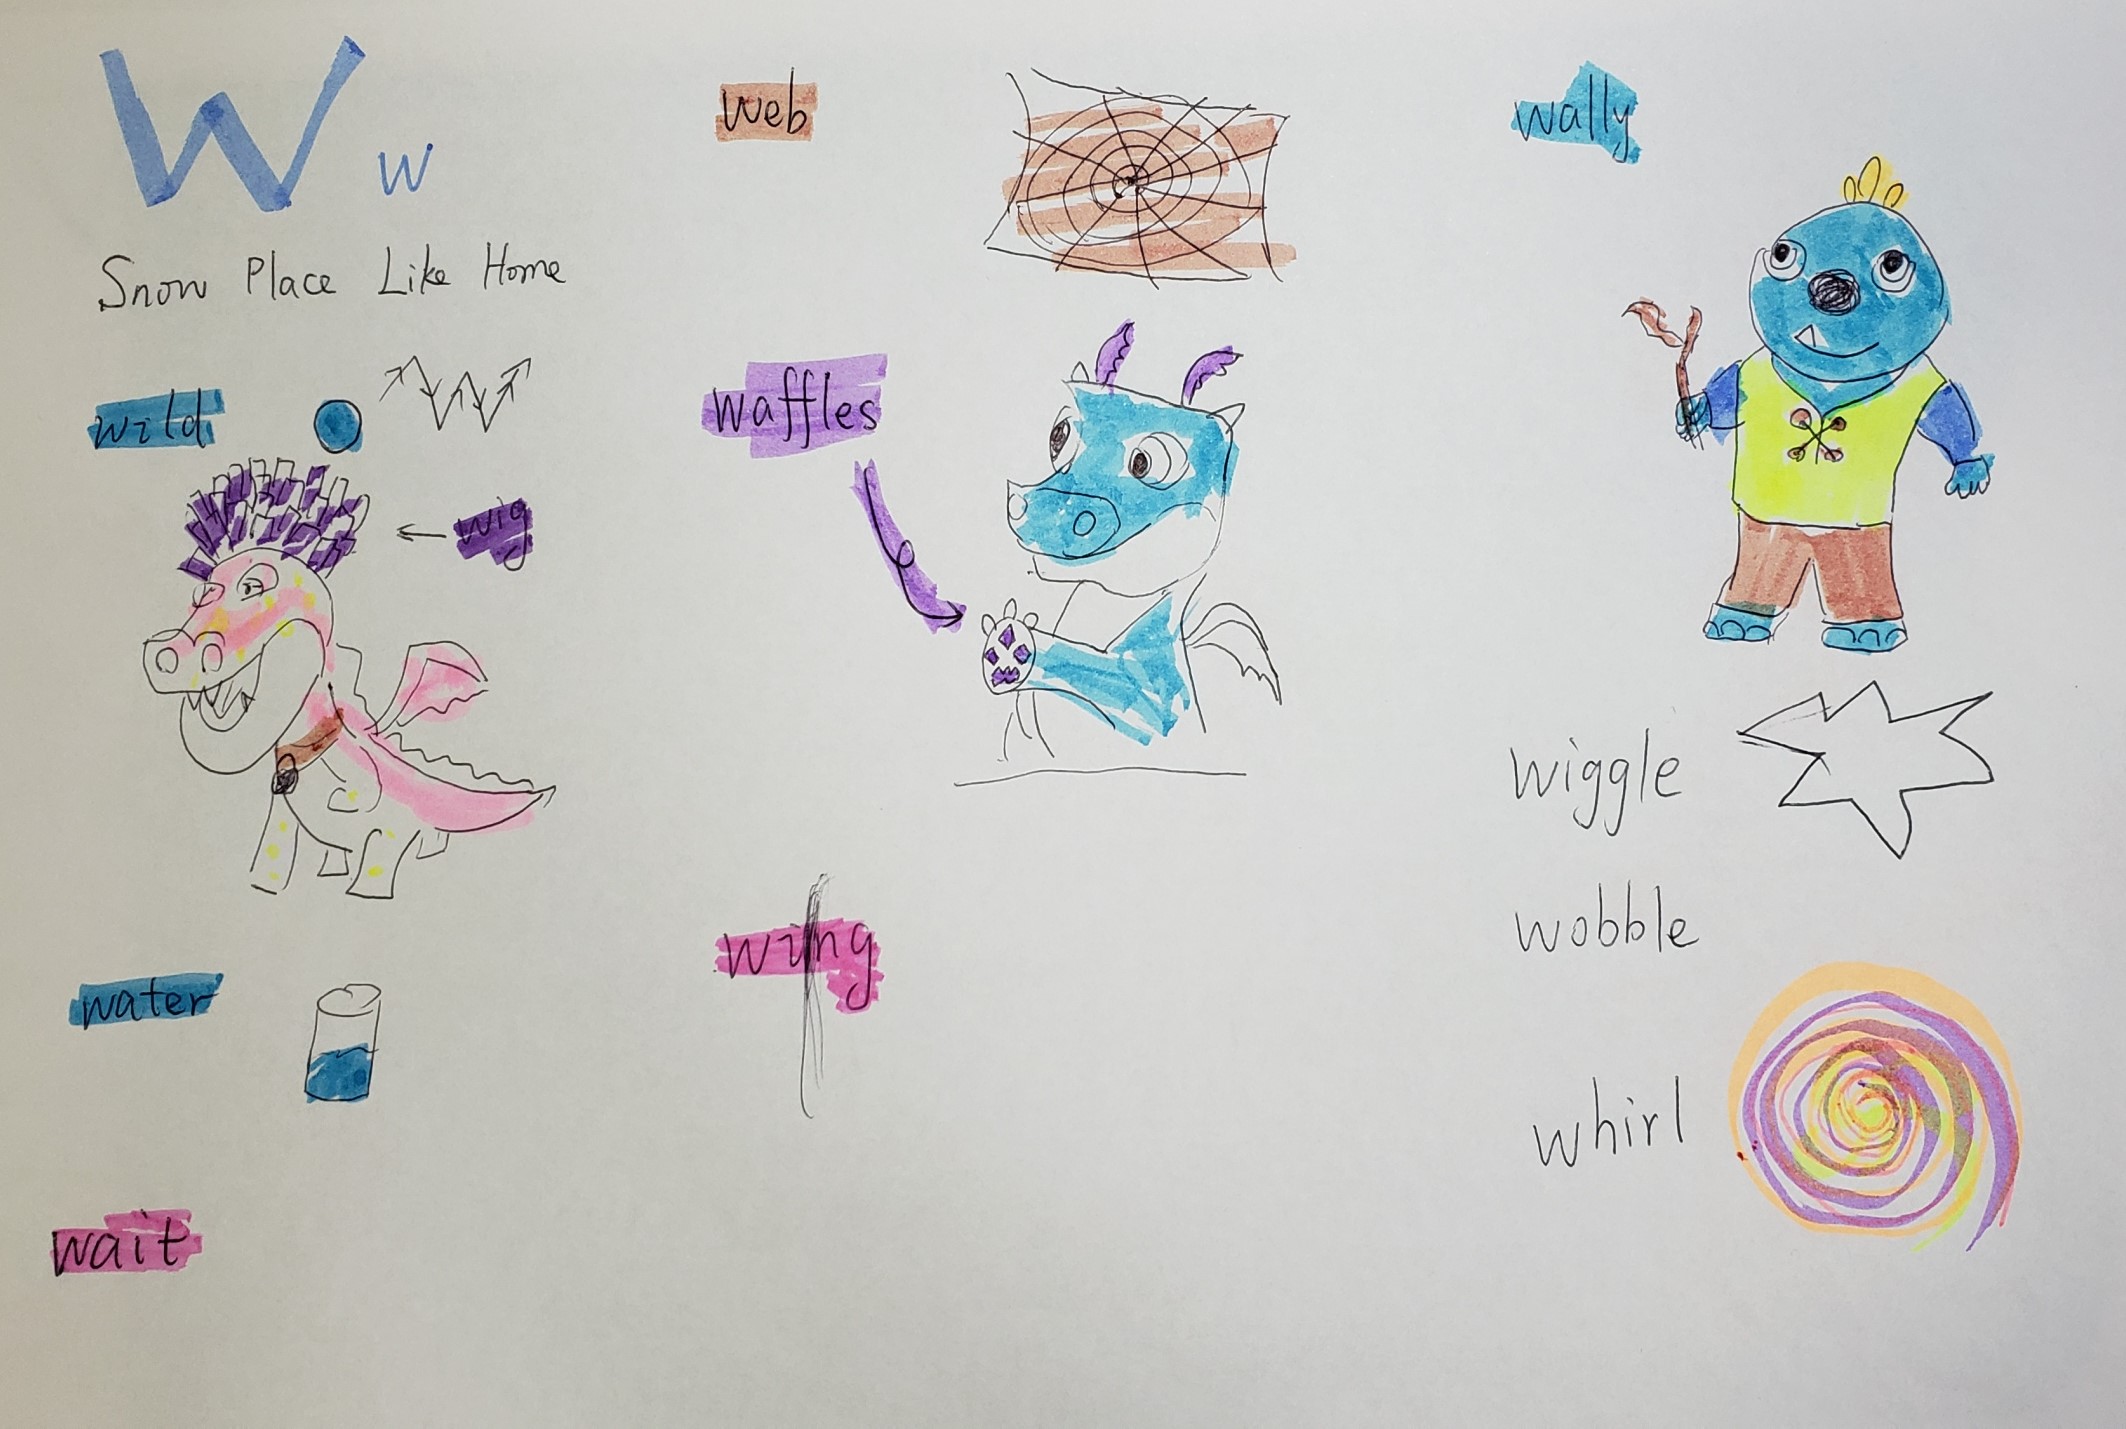 W w
Snow Place Like Home
wild
wig
water
wait
web
waffles
wing
wally
wiggle
wobble
whirl